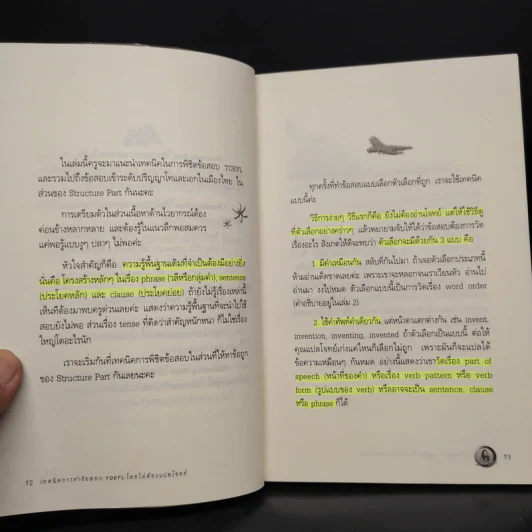 ในเล่มนี้ครูจะมาแนะนำเทคนิคในการพิชิตข้อสอบ TOEFL
และรวมไปถึงข้อสอบเข้าระดับปริญญาโทและเอกในเมืองไทย ใน
ส่วนของ Structure Part กันนะคะ
การเตรียมตัวในส่วนเนื้อหาด้านไวยากรณ์ต้อง
ค่อนข้างหลากหลาย และต้องรู้ในแนวลึกพอสมควร
แค่พอรู้แบบงูๆ ปลาๆ ไม่พอค่ะ
หัวใจสำคัญก็คือ ความรู้พื้นฐานเดิมที่จำเป็นต้องมีอย่างยิ่ง
นั่นคือ โครงสร้างหลักๆ ในเรื่อง phrase (วลีหรือกลุ่มคำ), sentence
(ประโยคหลัก) และ clause (ประโยคย่อย) ถ้ายังไม่รู้เรื่องเหล่านี้
เห็นทีต้องมาพบครูด่วนเลยค่ะ แสดงว่าความรู้พื้นฐานที่จะนำไปใช้
สอบยังไม่พอ ส่วนเรื่อง tense ที่คิดว่าสำคัญหนักหนา ก็ไม่ใช่เรื่อง
ใหญ่โตอะไรนัก
เราจะเริ่มกันที่เทคนิคการพิชิตข้อสอบในส่วนที่ให้หาข้อถูก
ของ Structure Part กันเลยนะคะ
12 เทคนิคการทำข้อสอบ TOEFL โดยไม่ต้องแปลโจทย์
ทุกครั้งที่ทำข้อสอบแบบเลือกตัวเลือกที่ถูก เราจะใช้เทคนิค
แบบนี้ค่ะ
วิธีการง่ายๆ วิธีแรกก็คือ ยังไม่ต้องอ่านโจทย์ แต่ให้ใช้วิธีดู
ที่ตัวเลือกอย่างคร่าวๆ แล้วพยายามจับให้ได้ว่าข้อสอบต้องการวัด
เรื่องอะไร สังเกตให้ดีจะพบว่า ตัวเลือกจะมีด้วยกัน 3 แบบ คือ
1. มีคำเหมือนกัน สลับที่กันไปมา ถ้าเจอตัวเลือกประเภทนี้
ห้ามอ่านเด็ดขาดเลยค่ะ เพราะเขาจะหลอกจนเราเวียนหัว อ่านไป
อ่านมา งงไปหมด ตัวเลือกแบบนี้เป็นการวัดเรื่อง word order
(คำอธิบายอยู่ในเล่ม 2)
2. ใช้คำศัพท์คำเดียวกัน แต่หน้าตาแตกต่างกัน เช่น invent,
invention, inventing, invented ถ้าตัวเลือกเป็นแบบนี้ ต่อให้
คุณแปลโจทย์เก่งแค่ไหนก็เลือกไม่ถูก เพราะมันก็จะแปลได้
ข้อความเหมือนๆ กันหมด อย่างนี้แสดงว่าเขาวัดเรื่อง part of
speech (หน้าที่ของคำ) หรือเรื่อง verb pattern หรือ verb
form (รูปแบบของ verb) หรืออาจจะเป็น sentence, clause
หรือ phrase ก็ได้
13